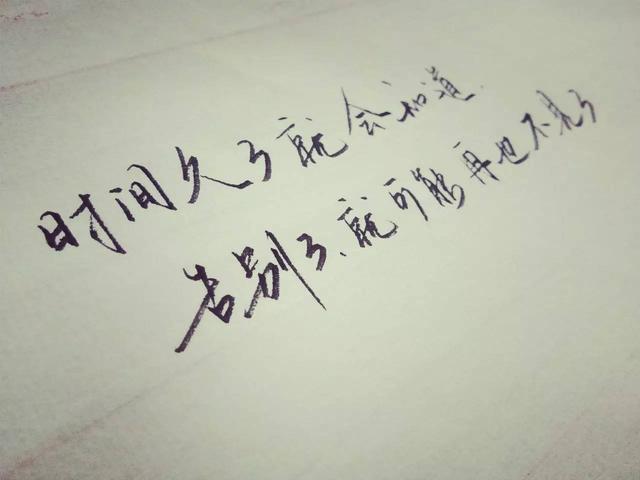 时间久了就会知道
告别了、就可能再也不见了